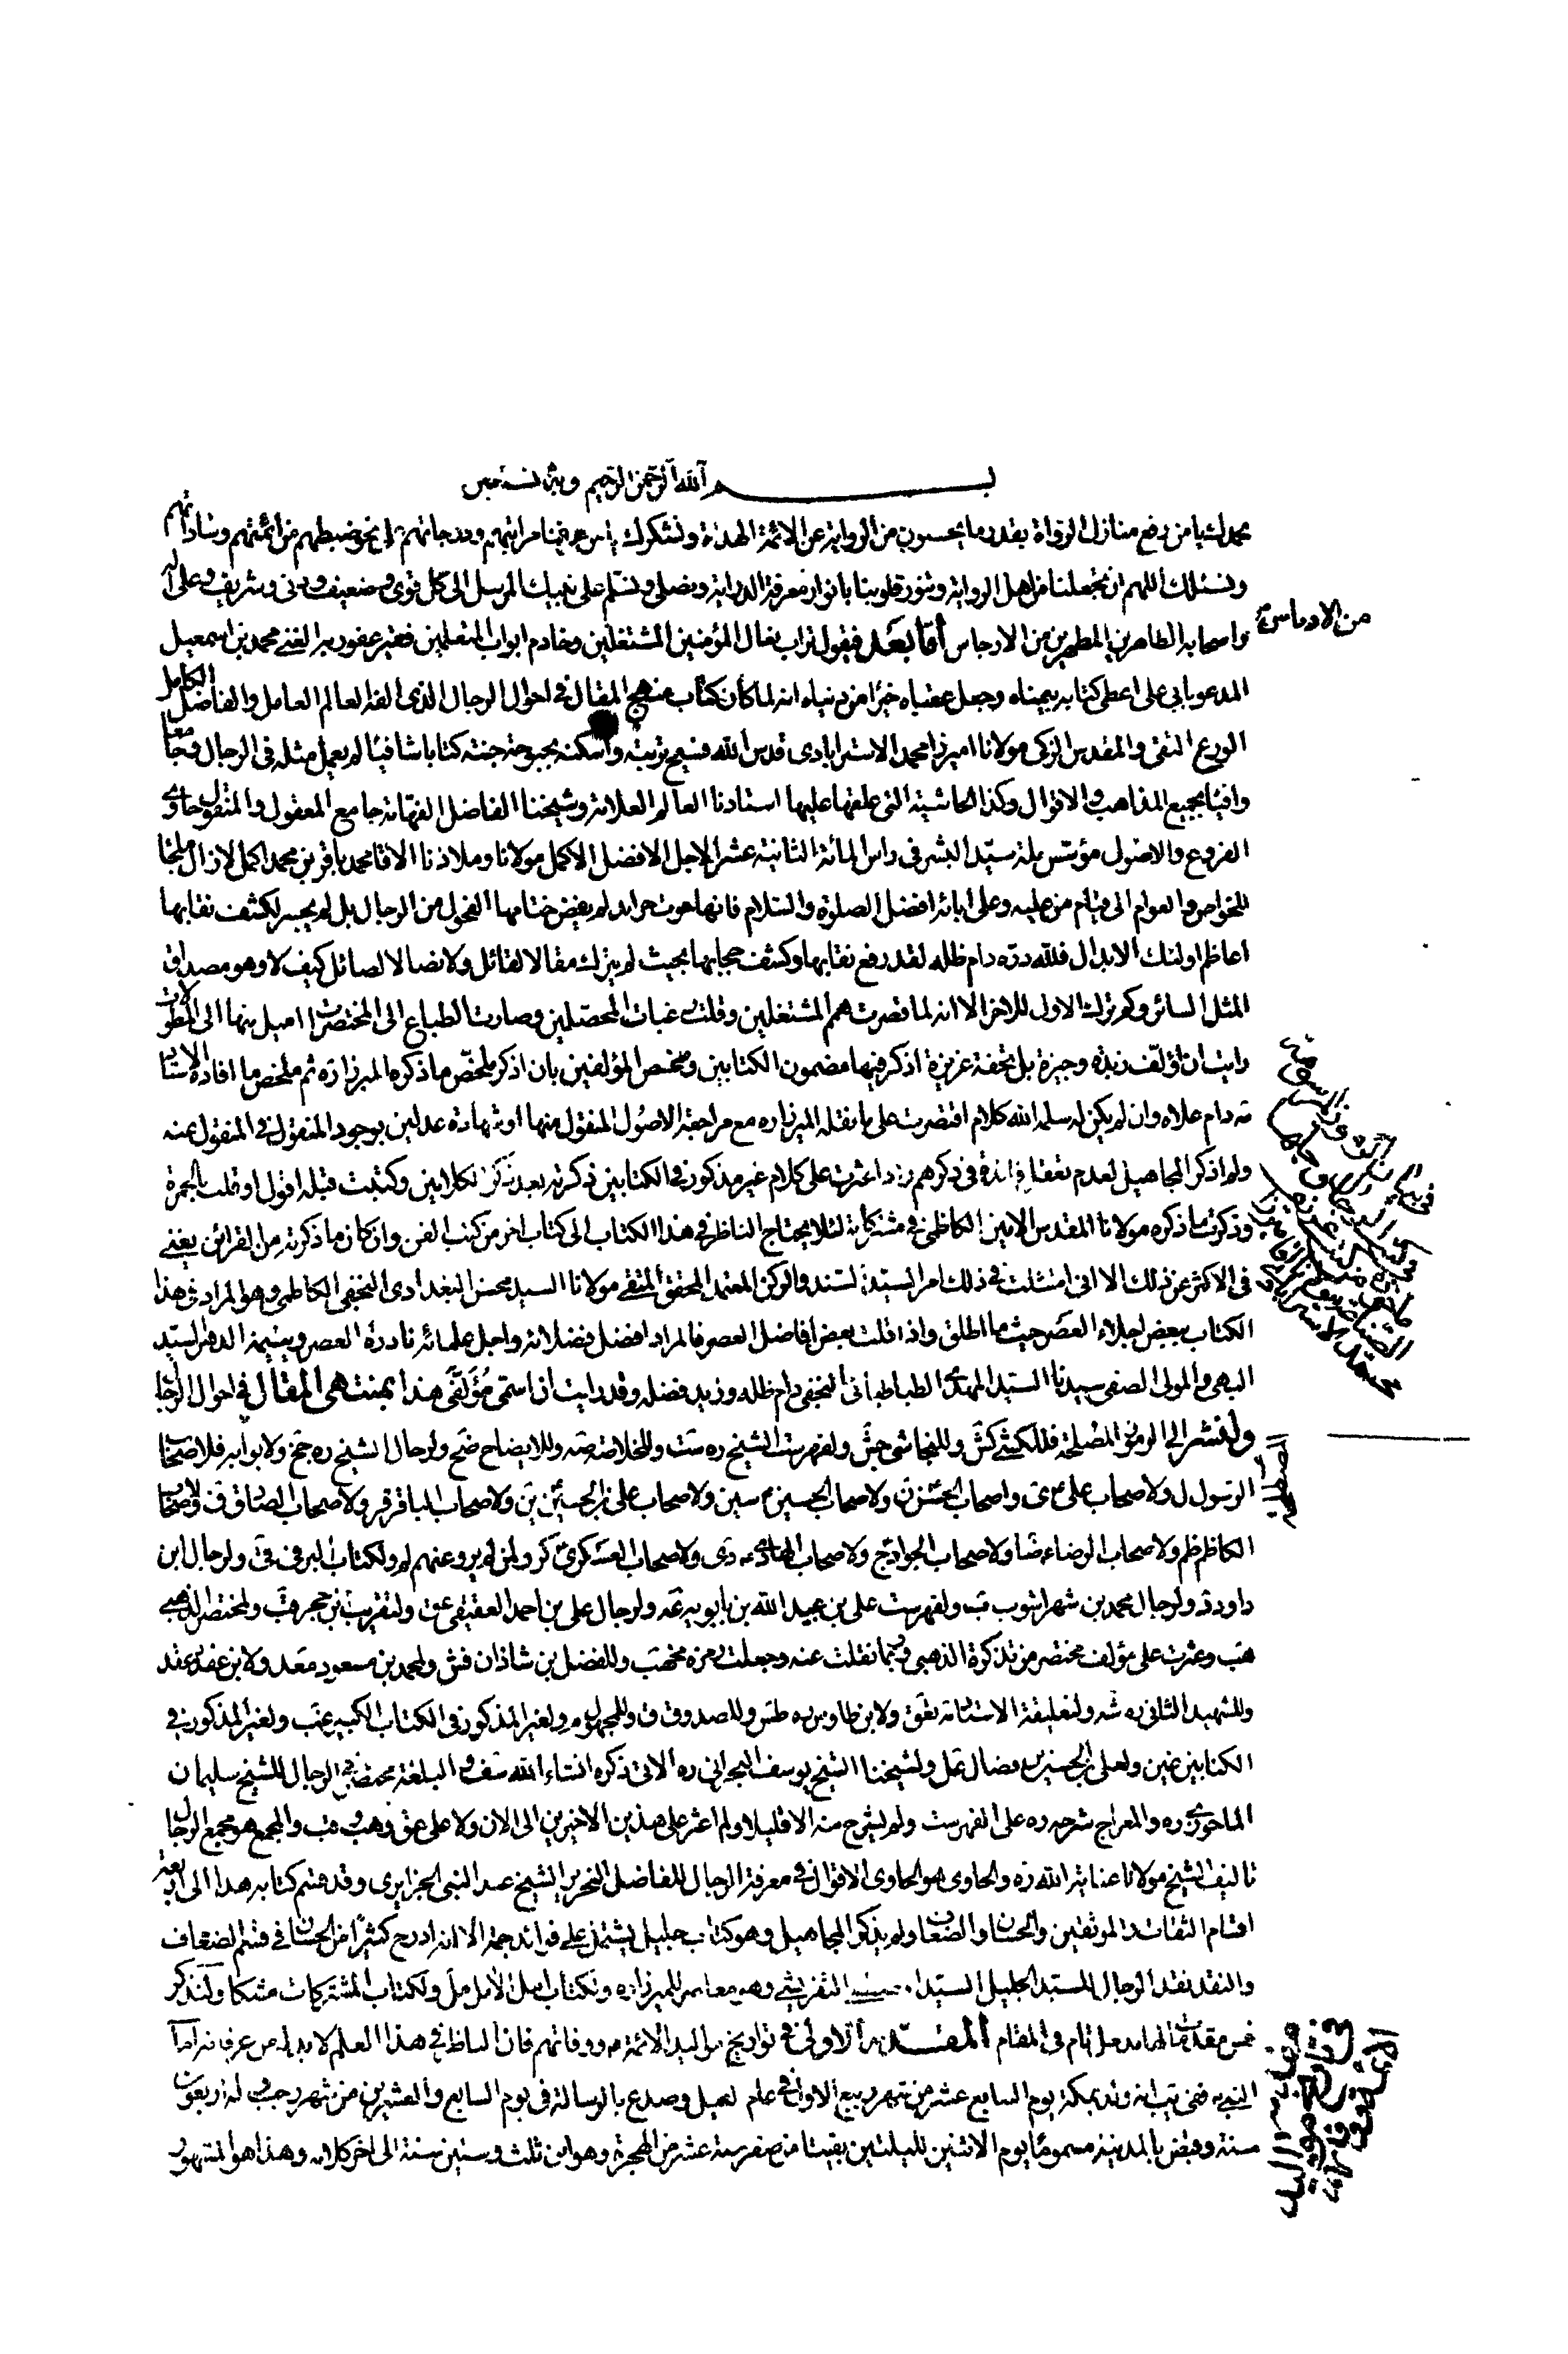 بسم الله الرحمن الرحيم وبه نستعين
نحمدك يا من رفع منازل الرواة بقدر ما يحسنون من الرواية عن الائمة الهداة ونشكرك يا من عرفنا مراتبهم ودرجاتهم على نحو ضبطهم من ائمتهم وساداتهم
ونسئلك اللهم ان تجعلنا من اهل الرواية وتنور قلوبنا بانوار معرفة الدراية ونصلى ونسلم على نبيك المرسل الى كل قوى وضعيف ودنى وشريف وعلى آله
واصحابه الطاهرين المطهرين من الارجاس أما بعد فيقول تراب نعال المؤمنين المشتغلين وخادم ابواب المتعلمين فقير عفو ربه الغنى محمد بن اسمعيل
من الادناس
المدعو بابى على اعطى كتابه بيمناه وجعل عقباه خيرا من دنياه انه لما كان كتاب منهج المقال فى احوال الرجال الذى الفه العالم العامل والفاضل الكامل
الورع التقى والمقدس الزكى مولانا اميرزا محمد الاسترابادى قدس الله فسيح تربته واسكنه بحبوحة جنته كتابا شافيا لم يعمل مثله فى الرجال وجامعا
وافيا بجميع المذاهب والاقوال وكذا الحاشية التى علقها عليها استادنا العالم العلامة وشيخنا الفاضل الفهامة جامع المعقول والمنقول حاوى
الفروع والاصول مؤسس ملة سيد البشر فى راس المائة الثانية عشر الاجل الافضل الاكمل مولانا وملاذنا الاقا محمد باقر بن محمد اكمل لازال ملجأ
للخواص والعوام الى قيام من عليه وعلى ابائه افضل الصلوة والسلام فانها حوت خرائد لم يفض ختامها الفحول من الرجال بل لم يجسر لكشف نقابها
اعاظم اولئك الابدال فلله دره دام ظله لقد رفع نقابها وكشف حجابها بحيث لم يترك مقالا لقائل ولا نضالا لصائل كيف لا وهو مصداق
المثل السائر وكم ترك الاول للاخر الا انه لما قصرت همم المشتغلين وقلت رغبات المحصلين وصارت الطباع الى المختصرات اميل منها الى المطولات
رايت ان اؤلف زبدة وجيزة بل تحفة عزيزة اذكر فيها مضمون الكتابين ومخلص المؤلفين بان اذكر ملخص ما ذكره الميرزا ره ثم ملخص ما افاده الاستا
ته دام علاه وان لم يكن له سلمه الله كلام اقتصرت على ما نقله الميرزا ره مع مراجعة الاصول المنقول منها او شهادة عدلين بوجود المنقول فى المنقول عنه
ولم اذكر المجاهيل لعدم تعقل فائدة فى ذكرهم واذا عثرت على كلام غير مذكور فى الكتابين ذكرته بعد ذكر الكلامين وكتبت قبله اقول او قلت بالحمرة
وذكرت ما ذكره مولانا المقدس الامين الكاظمى فى مشتركاته لئلا يحتاج الناظر فى هذا الكتاب الى كتاب اخر من كتب الفن وان كان ما ذكرته من القرائن يغنى
فى الاكثر عن ذلك الا انى امتثلت فى ذلك امر السيد السند والركن المعتمد المحقق المتقى مولانا السيد محسن البغدادى النجفى الكاظمى وهو المراد فى هذا
الكتاب ببعض اجلاء العصر حيث ما اطلق واذا قلت بعض افاضل العصر فالمراد افضل فضلائه واجل علمائه نادرة العصر ويتيمة الدهر السيد
البهى والمولى الصفى سيدنا السيد المهدى الطباطبائى النجفى دام ظله وزيد فضله وقد رايت ان اسمى مؤلفى هذا بمنتهى المقال فى احوال الرجال
ولنشر الى الرموز المصطلحة فللكشى كش وللنجاشى جش ولفهرست الشيخ ره ست وللخلاصة صه وللايضاح ضح ولرجال الشيخ ره جخ ولابوابه فلاصحاب
الرسول ل ولاصحاب على ى واصحاب الحسن ن ولاصحاب الحسين سين ولاصحاب على بن الحسين ين ولاصحاب الباقر قر ولاصحاب الصادق ق ولاصحاب
الكاظم ظم ولاصحاب الرضا ضا ولاصحاب الجواد ج ولاصحاب الهادى دى ولاصحاب العسكرى كر ولمن لم يرو عنهم لم ولكتاب البرقى قى ولرجال ابن
داود د ولرجال محمد بن شهراشوب ب ولفهرست على بن عبيد الله بن بابويه عه ولرجال على بن احمد العقيقى عق ولتقريب بن حجر قب ولمختصر الذهبى
هب وعثرت على مؤلف مختصر من تذكرة الذهبى ربما نقلت عنه وجعلت رمزه مخهب وللفضل بن شاذان فش ولمحمد بن مسعود معد ولابن عقدة عقد
وللشهيد الثانى ره شه ولتعليقة الاستاد ته تعق ولابن طاوس ره طس وللصدوق ق وللمجهول م ولغير المذكور فى الكتاب الكبير عب ولغير المذكور فى
الكتابين غين ولعلى بن الحسن بن فضال عل ولشيخنا الشيخ يوسف البحرانى ره الاتى ذكره انشاء الله سف والبلغة مختصر فى الرجال للشيخ سليمان
الماحوزى ره والمعراج شرحه ره على الفهرست ولم يشرح منه الا قليلا ولم اعثر على هذين الاخيرين الى الان ولا على عق وهب وقب والمجمع هو مجمع الرجال
تاليف الشيخ مولانا عناية الله ره والحاوى هو الحاوى الاقوال فى معرفة الرجال للفاضل النحرير الشيخ عبد النبى الجزايرى وقد قسم كتابه هذا الى اربعة
اقسام الثقات والموثقين والحسان والضعاف ولم يذكر المجاهيل وهو كتاب جليل يشتمل على فوائد جمة الا انه ادرج كثيرا من الحسان فى قسم الضعاف
والنقد نقد الرجال للسيد الجليل السيد مصطفى التفرشى وهو معاصر للميرزا ره ولكتاب امل الامل مل ولكتاب المشتركات مشكا ولنذكر
خمس مقدمات لها مدخل تام فى المقام المقدمة الاولى فى تواريخ مواليد الائمة ووفاتهم فان الناظر فى هذا العلم لا بد له من عرفانه اما
النبى فعن يب انه ولد بمكة يوم السابع عشر من شهر ربيع الاول فى عام الفيل وصدع بالرسالة فى يوم السابع والعشرين من شهر رجب وله اربعون
سنة وقبض بالمدينة مسموما يوم الاثنين لليلتين بقيتا من صفر سنة عشر من الهجرة وهو ابن ثلث وستين سنة الى اخر كلامه وهذا هو المشهور